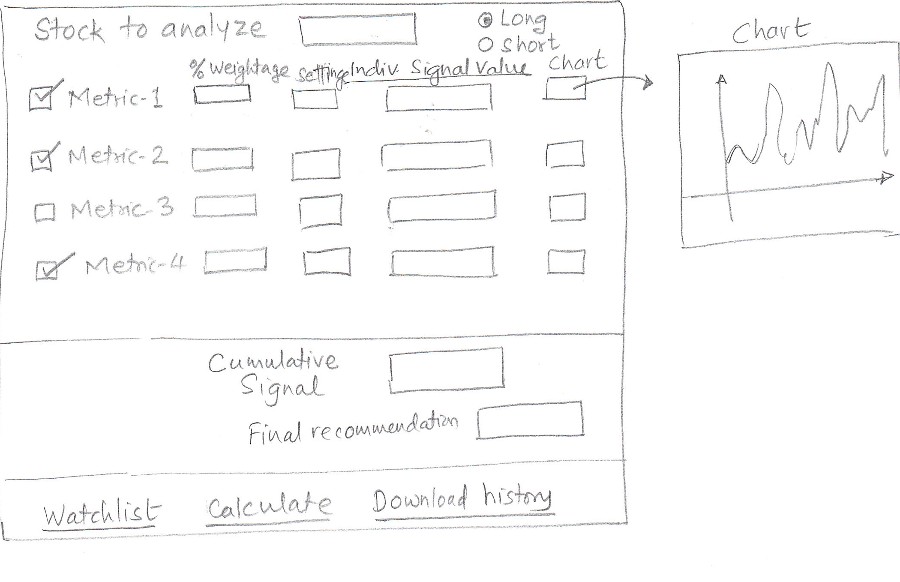 Stock to analyze
Long
Short
% Weightage Settings Indiv. Signal Value Chart
Metric-1
Metric-2
Metric-3
Metric-4
Cumulative
Signal
Final recommendation
Watchlist Calculate Download history
Chart